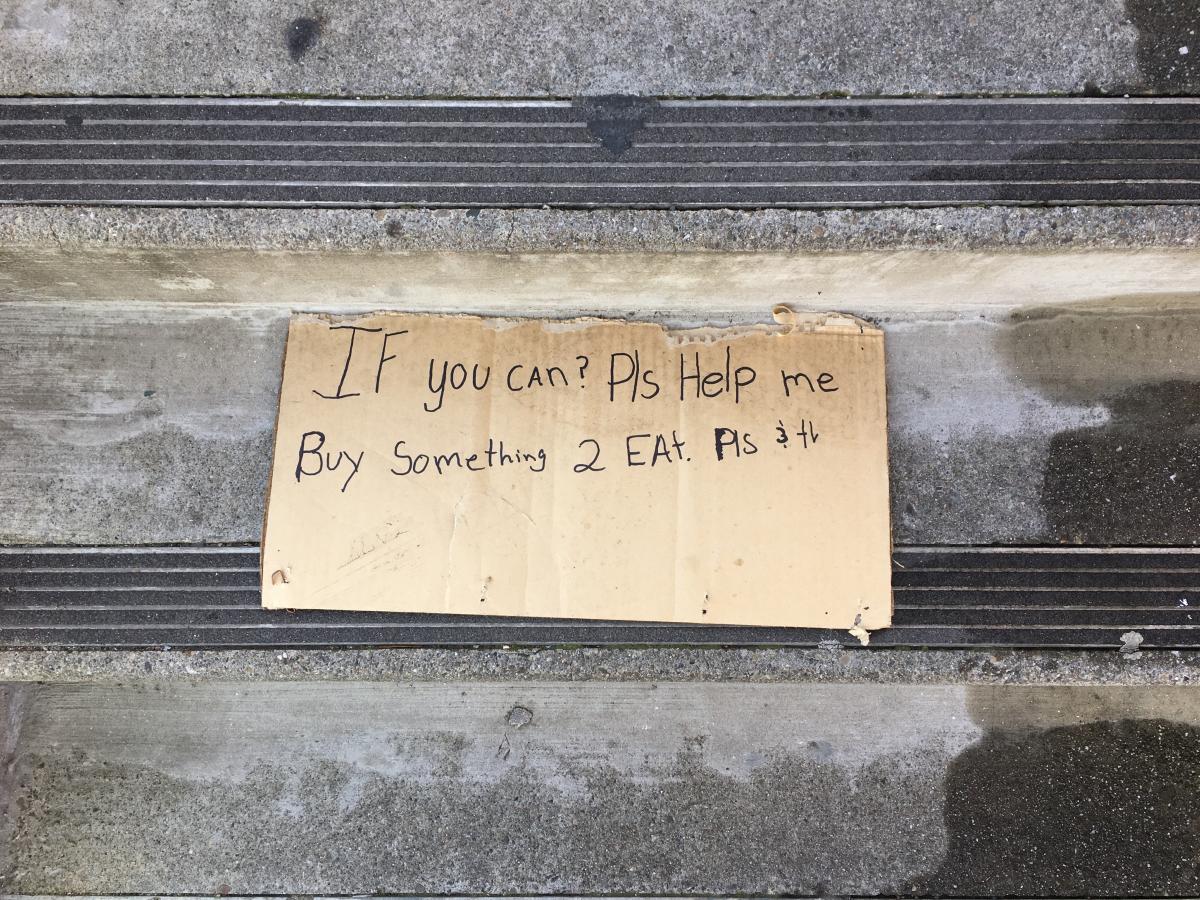 IF you can? Pls Help me
Buy Something 2 EAt. Pls & th